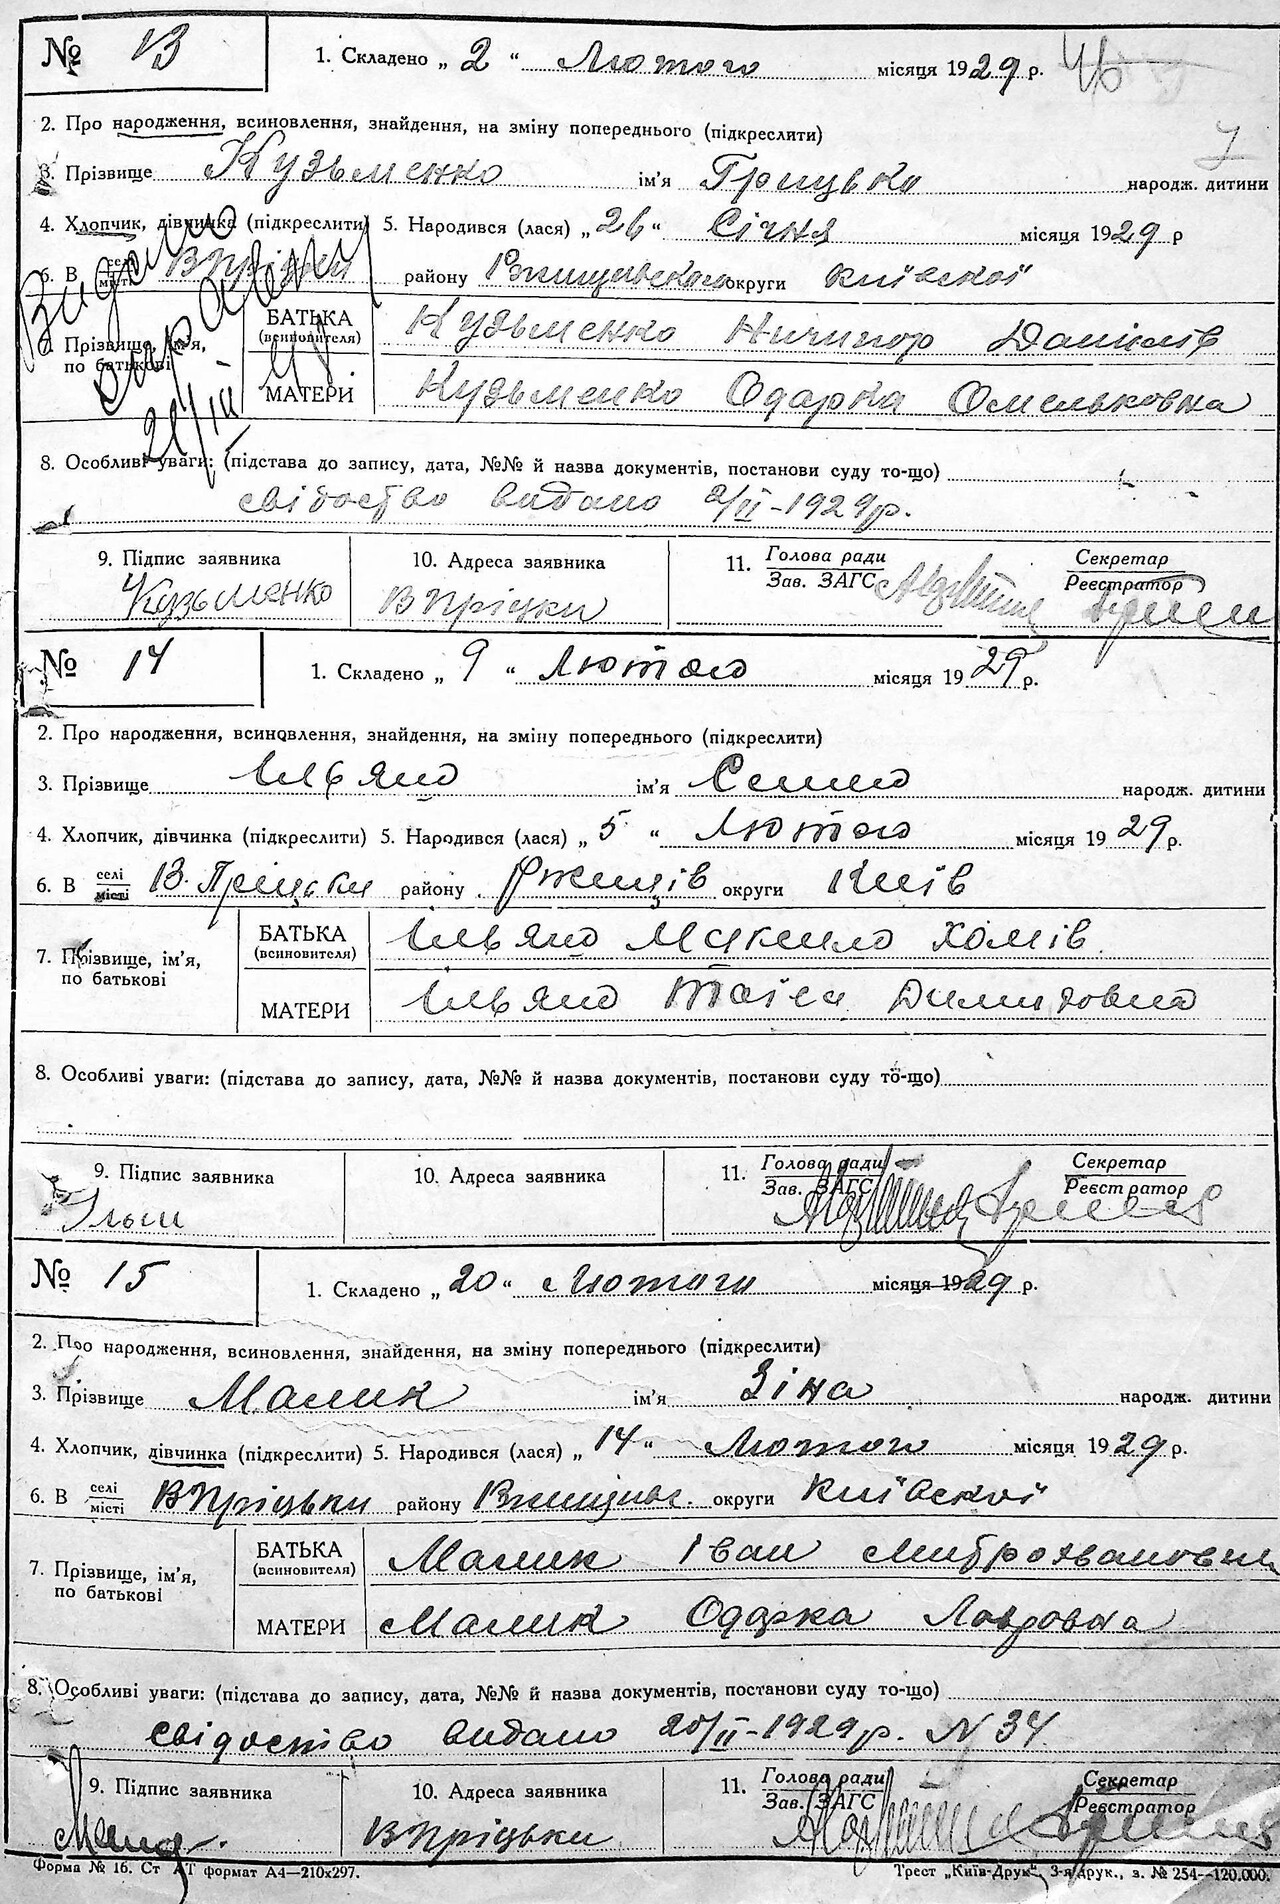 № 13 1. Складено „ 2 “ Лютого місяця 1929 р. 46
7
2. Про народження, всиновлення, знайдення, на зміну попереднього (підкреслити)
3. Прізвище Кузьменко ім'я Грицько народж. дитини
4. Хлопчик, дівчинка (підкреслити) 5. Народився (лася) „ 26 “ Січня місяця 1929 р
6. В селі місті В Пріцьки району Ржищівського округи Київскої
Видано
7. Прізвище, ім'я, по батькові БАТЬКА (всиновителя) Кузьменко Ничипор Данилів
МАТЕРИ Кузьменко Одарка Омельковна
8. Особливі уваги: (підстава до запису, дата, №№ й назва документів, постанови суду то-що)
свідоство видано 2/II-1929р.
9. Підпис заявника 10. Адреса заявника 11. Голова ради Зав. ЗАГС Секретар Реєстратор
Кузьменко В Пріцьки
№ 14 1. Складено „ 9 “ Лютого місяця 1929 р.
2. Про народження, всиновлення, знайдення, на зміну попереднього (підкреслити)
3. Прізвище Ільяш ім'я народж. дитини
4. Хлопчик, дівчинка (підкреслити) 5. Народився (лася) „ 5 “ Лютого місяця 1929 р.
6. В селі місті В. Пріцьки району Ржищів округи Київ
7. Прізвище, ім'я, по батькові БАТЬКА (всиновителя) Ільяш Микило Хомів
МАТЕРИ Ільяш Таїса Димидовна
8. Особливі уваги: (підстава до запису, дата, №№ й назва документів, постанови суду то-що)
9. Підпис заявника 10. Адреса заявника 11. Голова ради Зав. ЗАГС Секретар Реєстратор
№ 15 1. Складено „ 20 “ Лютого місяця 1929 р.
2. Про народження, всиновлення, знайдення, на зміну попереднього (підкреслити)
3. Прізвище Малик ім'я Зіна народж. дитини
4. Хлопчик, дівчинка (підкреслити) 5. Народився (лася) „ 14 “ Лютого місяця 1929 р.
6. В селі місті В Пріцьки району Ржищівс. округи Київської
7. Прізвище, ім'я, по батькові БАТЬКА (всиновителя) Малик Іван Митрохванович
МАТЕРИ Малик Одарка Лавровна
8. Особливі уваги: (підстава до запису, дата, №№ й назва документів, постанови суду то-що)
свідоство видано 20/II-1929р. N 34
9. Підпис заявника 10. Адреса заявника 11. Голова ради Зав. ЗАГС Секретар Реєстратор
В Пріцьки
Форма № 16. Ст АТ формат А4—210х297. Трест „Київ-Друк“, 3-я друк., з. № 254—120.000.